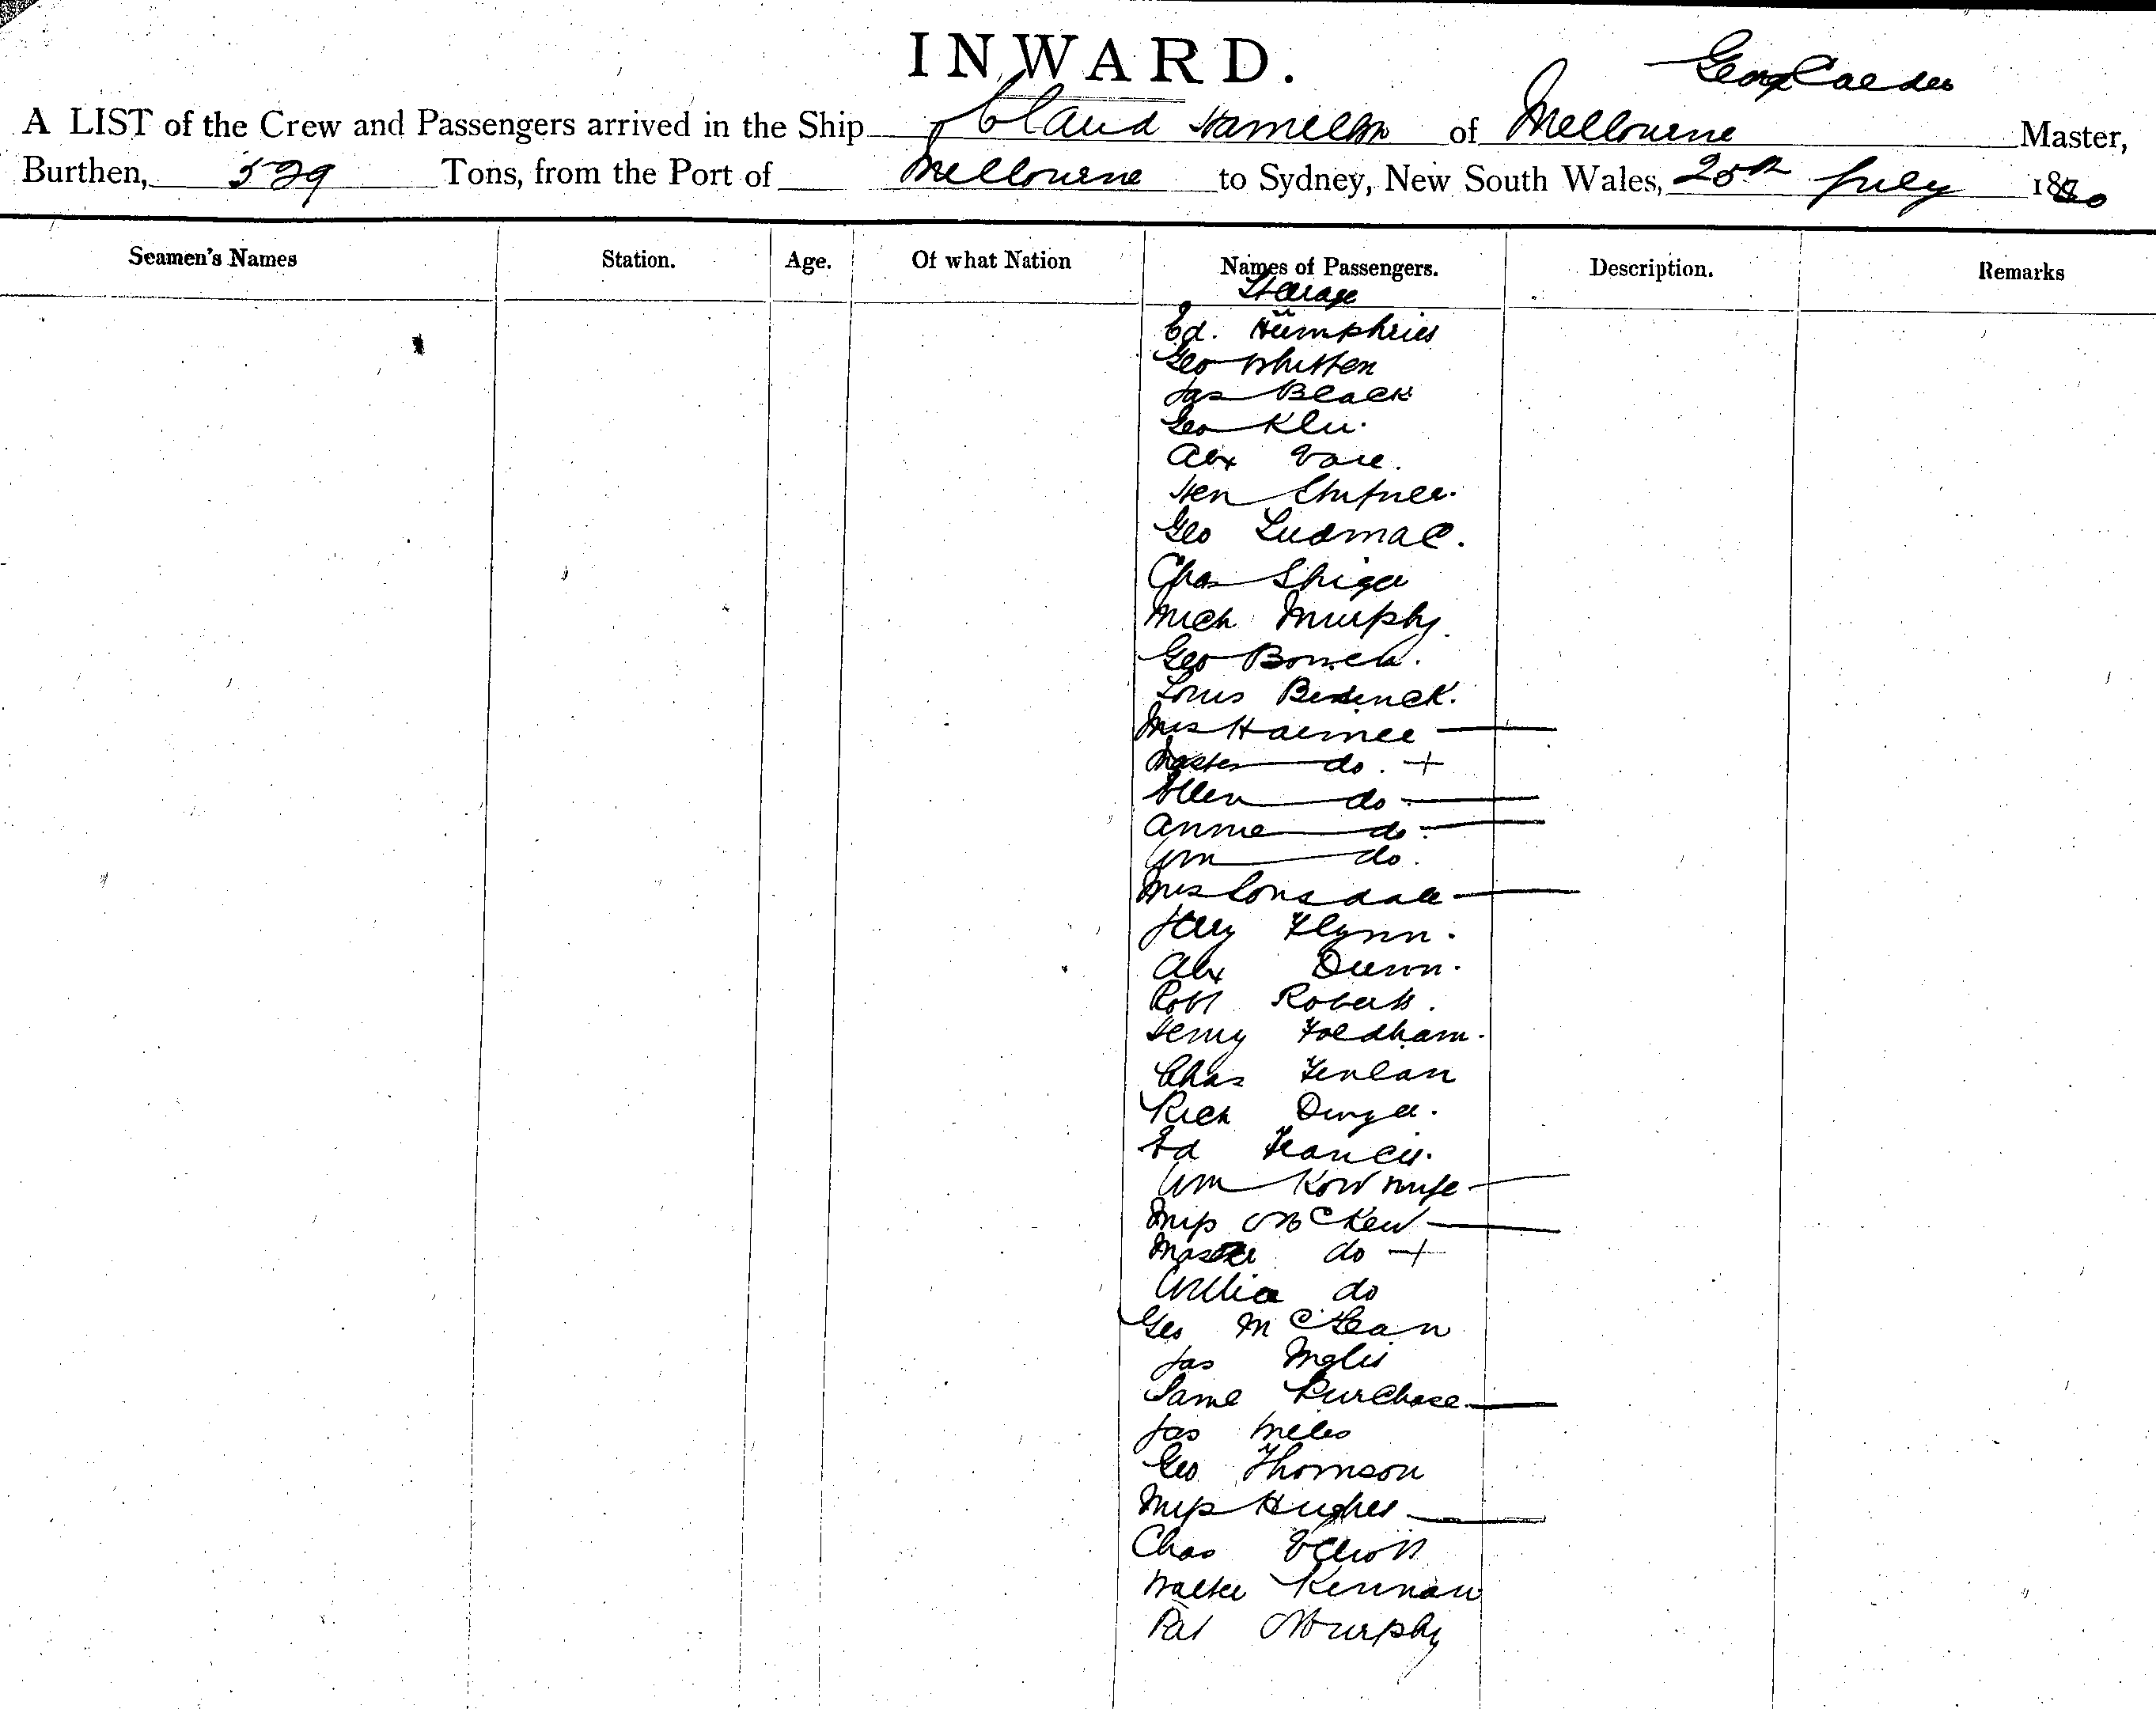 INWARD.
A LIST of the Crew and Passengers arrived in the Ship Claud Hamilton of Melbourne Geo Calder Master,
Burthen, 529 Tons, from the Port of Melbourne to Sydney, New South Wales, 25th July 1880
Seamen's Names Station. Age. Of what Nation Names of Passengers. Description. Remarks
Steerage
Ed. Humphries
Geo Whitten
Jas Black
Geo
Alex
Hen
Geo
Chas
Mich Murphy
Geo
Louis
Mrs
Master do. +
Ellen do
Annie do
Wm do.
Mrs Lonsdale
Jery Flynn.
Alex Dunn.
Robt Roberts.
Henry Foldham.
Chas Fenlan
Rich Dwyer.
Ed Francis.
Wm wife
Miss McKew
Master do +
Willie do
Geo McLean
Jas Inglis
Saml Purchase
Jas Miles
Geo Thomson
Miss Hughes
Chas Elliott
Walter Kennan
Pat Murphy